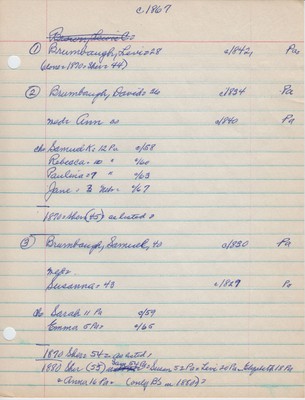 c1867
① Brumbaugh, Levi 28 c/1842, Pa
(Jones 1870 44)
② Brumbaugh, David 36 c/1834 Pa
Ann c/1840 Pa
ch Samuel K. 12 Pa c/58
Rebecca 10 " c/60
Paulina 7 " c/63
Jane 3 c/67
1870 (45) as listed
③ Brumbaugh, Samuel, 40 c/1830 Pa
Susanna 43 c/1827 Pa
ch Sarah 11 Pa c/59
Emma 5 Pa c/65
1870 54 as listed
1880 (55) Susan 52 Pa Levi 20 Pa Elizabeth 18 Pa
Anna 16 Pa (only B's in 1880)